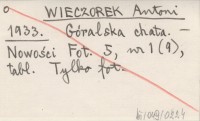 o WIECZOREK Antoni
1933. Góralska chata. –
Nowości Fot. 5, nr 1 (9),
tabl. Tylko fot.